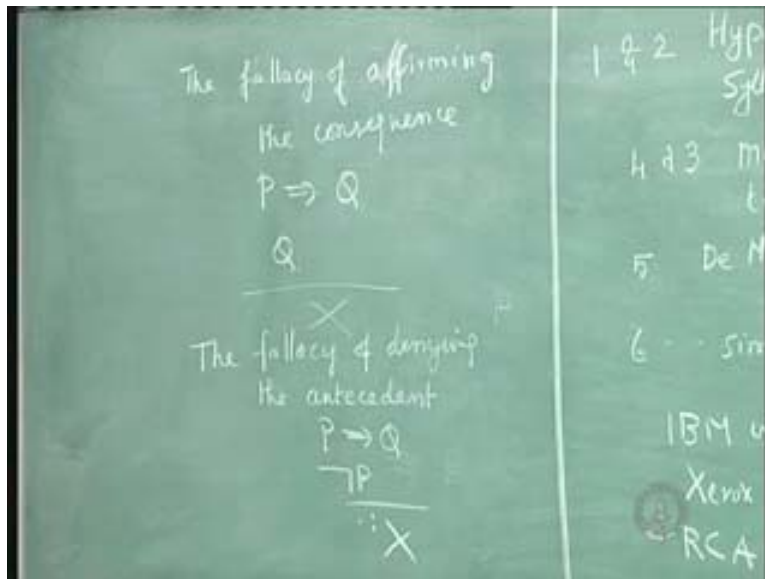 The fallacy of affirming
the consequence
P ⇒ Q
Q
X
The fallacy of denying
the antecedent
P → Q
¬P
∴ X
1 & 2 Hyp
Syll
4 & 3 M
t
5 De M
6 -- sim
IBM
Xerox
RCA